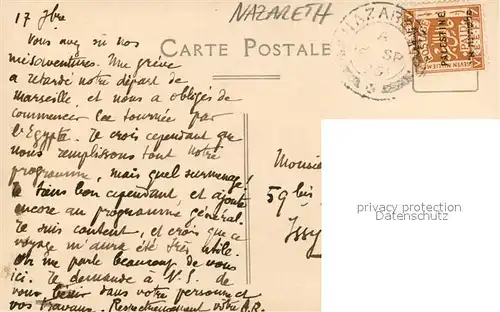 17 7bre
NAZARETH
CARTE POSTALE
NAZAR
A
SP
PALESTINE
Vous avez su nos
mésaventures. Une grève
a retardé notre départ de
Marseille, et nous a obligés de
commencer la tournée par
l'Egypte. Je crois cependant que
nous remplissons tout notre
programme, mais quel surmenage!
Je tiens bon cependant, et ajoute
encore au programme général.
Je suis content, et crois que ce
voyage m'aura été très utile.
On me parle beaucoup de vous
ici. Je demande à N.S. de
vous bénir dans votre personne et
vos travaux. Respectueusement vôtre
Monsie
59 bis
Issy
privacy protection
Datenschutz